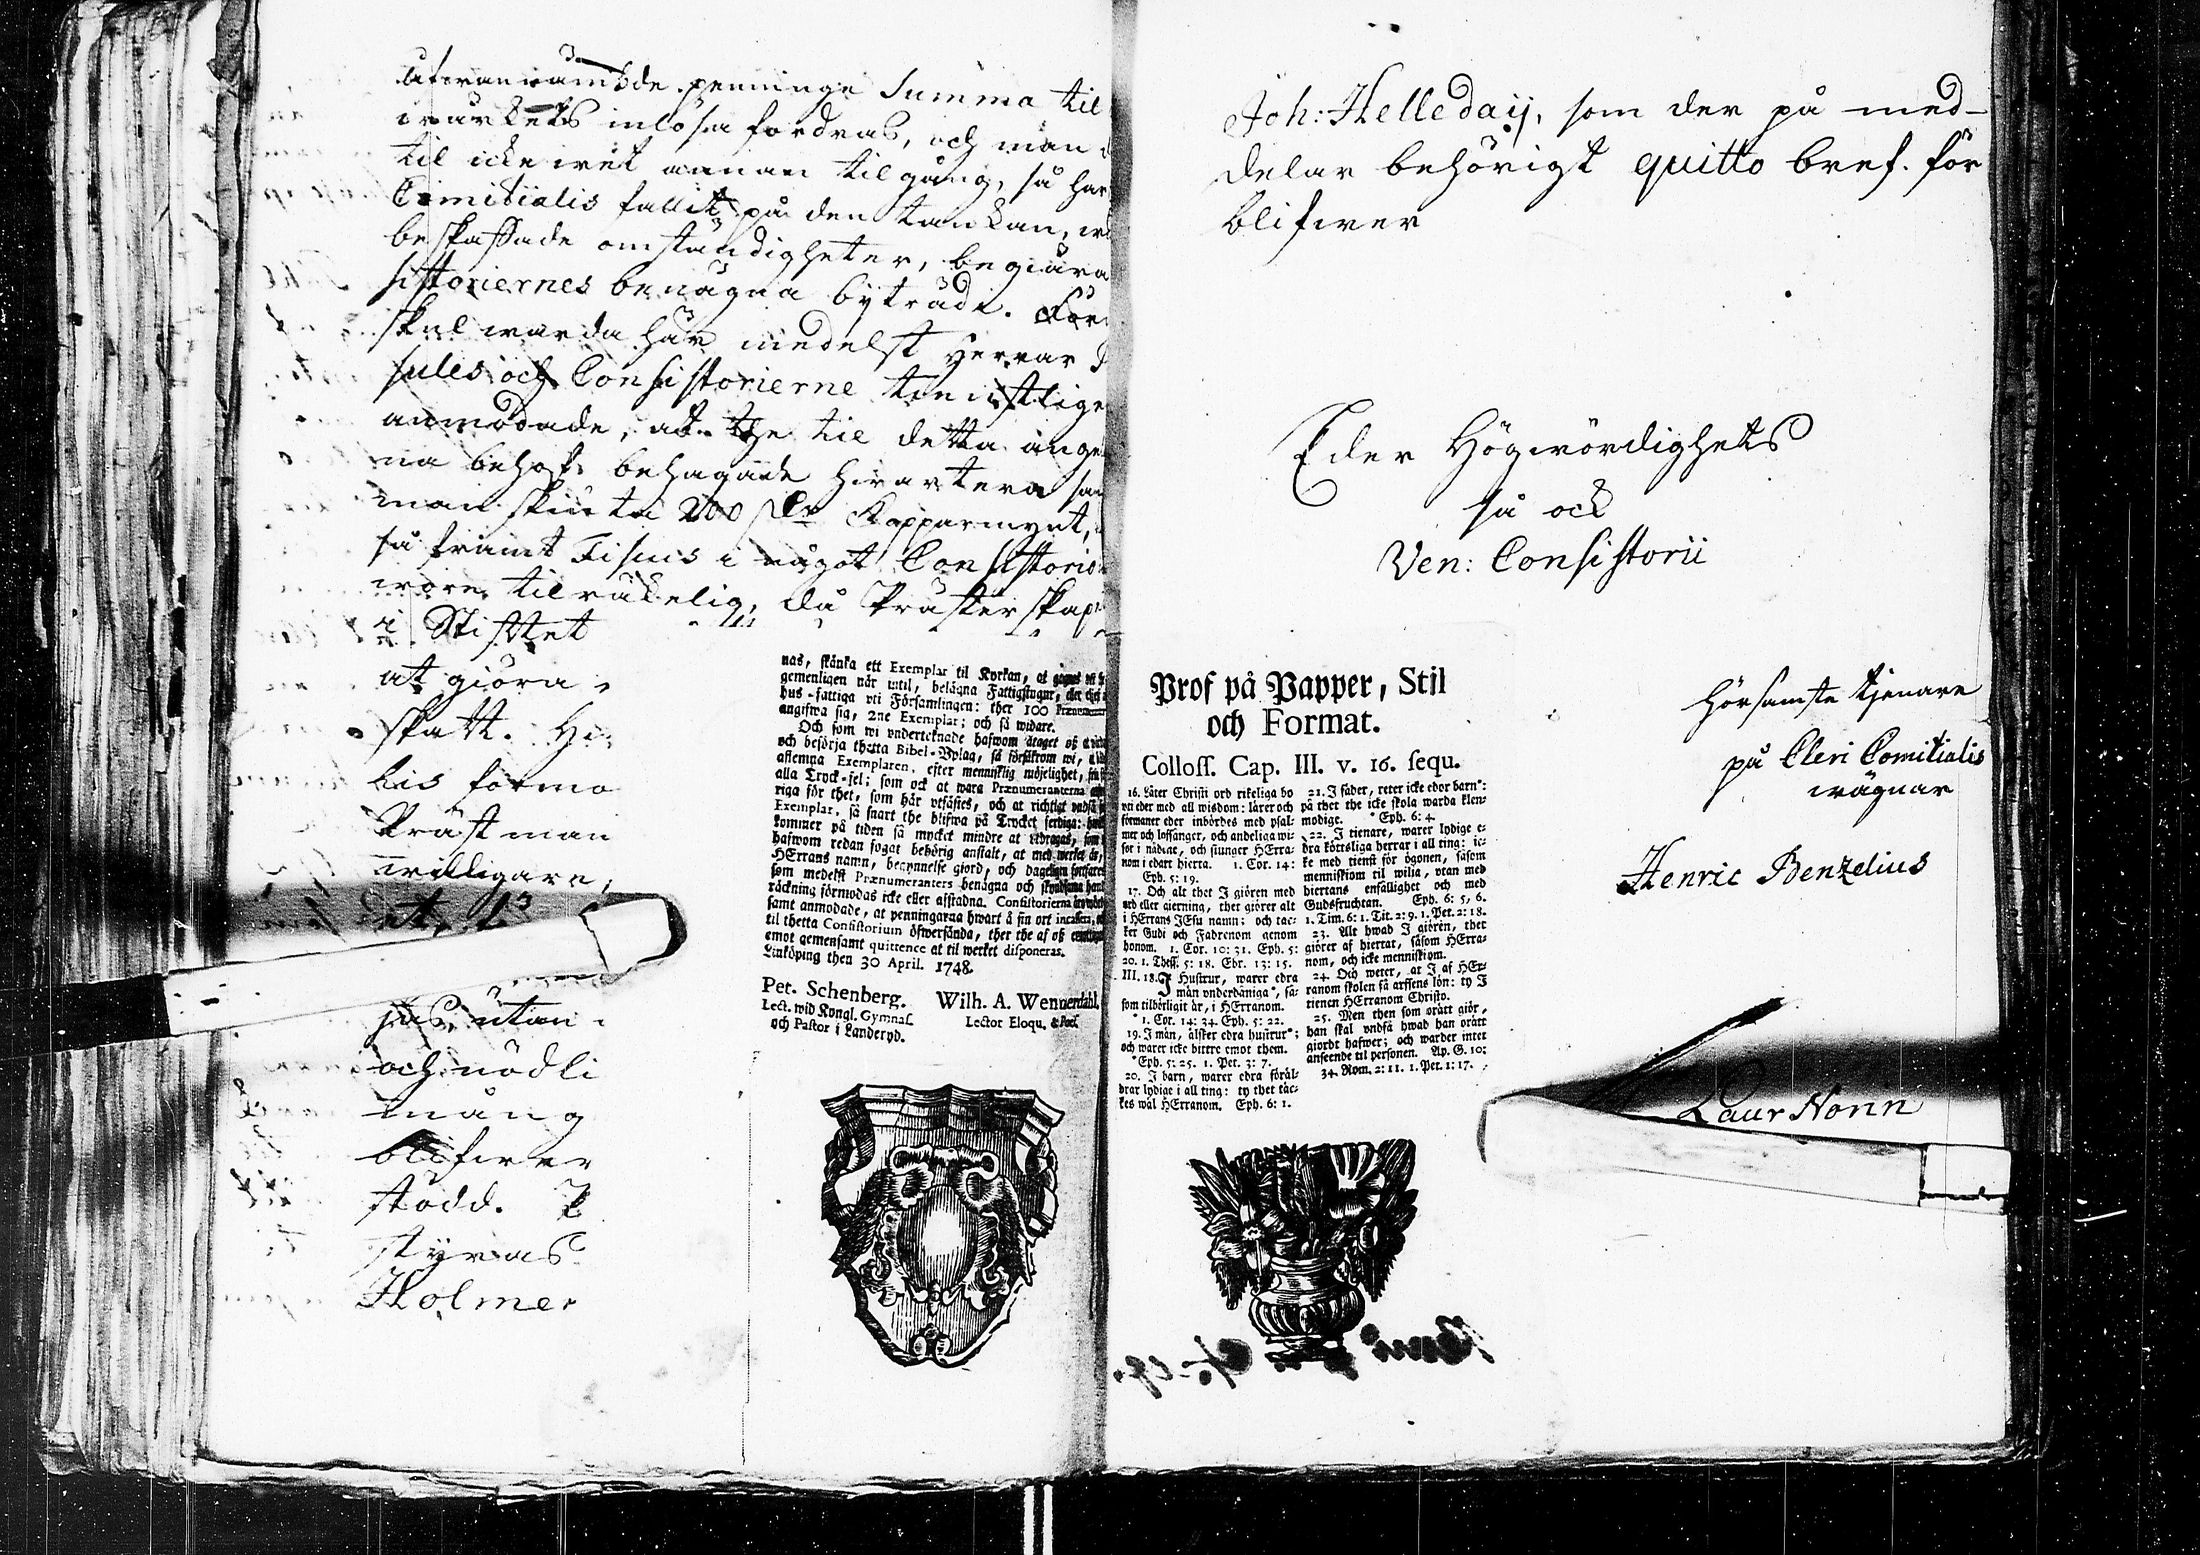 ofwannämde penninge Summa til
wärkets inlösa fordras, och man
til icke wet annan tilgång, så har
Comitialis fallit på den tanckan, wid
beskaffade omständigheter, begiära
sistoriernes benägna byträde. För
skul warda här medelst Herrar
sules och Consistorierne tienstlige
anmodade, at the til detta ange
na behof, behagade hwartera sam
manskiuta 200 Dlr Kopparmynt,
så framt Fiscus i något Consistorio
wore tilräckelig, då Prästerskap
i Stiftet
at giöra
skatt. Hi
lis förmo
Prästman
willigare,
et, 
utan
och nödli
mång
blifwer
stödd. P
styras
Holmer
nas, skänka ett Exemplar til Kyrkan, at
gemenligen når intil, belägna Fattigstugur,
hus-fattiga vti Församlingen: ther 100
angifwa sig, 2ne Exemplar; och så widare.
Och som wi vnderteknade hafwom åtaget oß
och besörja thetta Bibel-Vplag, så försäkrom wi,
aflemna Exemplaren, efter mennisklig möjelighet,
alla Tryck-fel; som ock at wara Prænumeranterna
riga för thet, som här vtfästes, och at richtigt vndfå
Exemplar, så snart the blifwa på Trycket ferdiga:
kommer på tiden så mycket mindre at fördragas, som
hafwom redan fogat behörig anstalt, at med werket är,
HErrans namn, begynnelse giord, och dageligen fortfares
som medelst Prænumeranters benägna och
räckning förmodas icke eller afstadna. Consistorierna
samt anmodade, at penningarna hwart å sin ort
til thetta Consistorium öfwersända, ther the af oß
emot gemensamt quittence at til werket disponeras.
Linköping then 30 April. 1748.
Pet. Schenberg.
Lect. wid Kongl. Gymnas.
och Pastor i Landeryd.
Wilh. A. Wennerdahl.
Lector Eloqu. & Poës.
Joh: Helleday, som der på med-
delar behörigt quitto bref. för
blifwer
Eder Högwördighets
så ock
Ven: Consistorii
Prof på Papper, Stil
och Format.
Coloss. Cap. III. v. 16. sequ.
16. Låter Christi ord rikeliga bo
vti eder med all wisdom: lärer och
förmaner eder inbördes med psal-
mer och loffsånger, och andeliga wi-
sor i nådene, och siunger HErra-
nom i edart hierta. 1. Cor. 14:
Eph. 5: 19.
17. Och alt thet I giören med
ord eller gierning, thet giörer alt
i HErrans JEsu namn: och tac-
ker Gudi och Fadrenom genom
honom. 1. Cor. 10: 31. Eph. 5:
20. 1. Thess. 5: 18. Ebr. 13: 15.
III. 18. I Hustrur, warer edra
män vnderdåniga*, så-
som tilbörligit är, i HErranom.
* 1. Cor. 14: 34. Eph. 5: 22.
19. I män, älsker edra hustrur*;
och warer icke bittre emot them.
* Eph. 5: 25. 1. Pet. 3: 7.
20. I barn, warer edra föräl-
drar lydige i all ting: ty thet täc-
kes wäl HErranom. Eph. 6: 1.
21. I fäder, reter icke edor barn*:
på thet the icke skola warda klen-
modige. * Eph. 6: 4.
22. I tienare, warer lydige e-
dra köttsliga herrar i all ting: ic-
ke med tienst för ögonen, såsom
menniskiom til wilia, vtan med
hiertans enfallighet och med
Gudsfruchtan. Eph. 6: 5, 6.
1. Tim. 6: 1. Tit. 2: 9. 1. Pet. 2: 18.
23. Alt hwad I giören, thet
giörer af hiertat, såsom HErra-
nom, och icke menniskiom.
24. Och weter, at I af HEr-
ranom skolen få arffsens lön: ty I
tienen HErranom Christo.
25. Men then som orätt giör,
han skal vndfå hwad han orätt
giordt hafwer; och warder intet
anseende til personen. Ap. G. 10:
34. Rom. 2: 11. 1. Pet. 1: 17.
hörsamste tjenare
på Cleri Comitialis
wägnar
Henric Benzelius
Laur Nonn